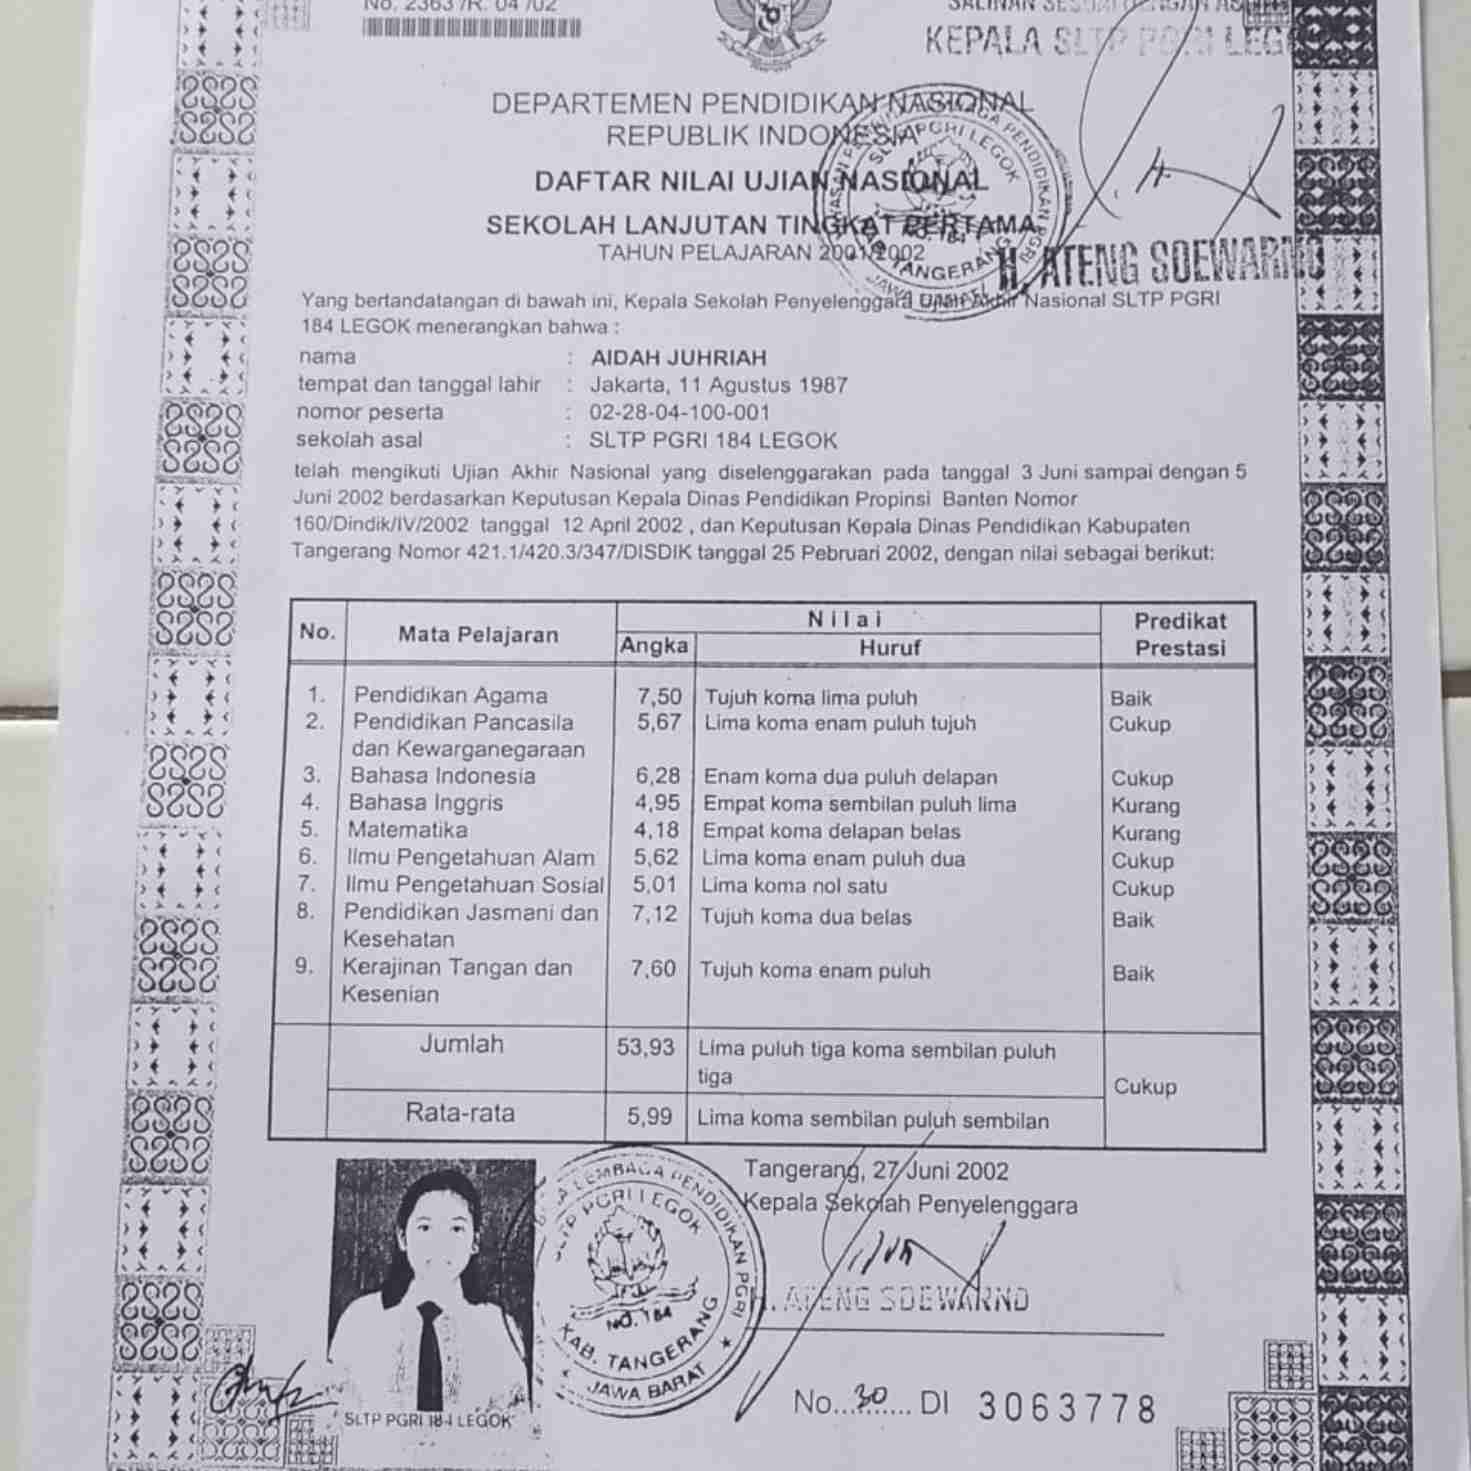 No. 2363 /R. 04 /02
SALINAN SESUAI DENGAN ASLI
KEPALA SLTP PGRI LEGOK
DEPARTEMEN PENDIDIKAN NASIONAL
REPUBLIK INDONESIA
DAFTAR NILAI UJIAN NASIONAL
SEKOLAH LANJUTAN TINGKAT PERTAMA
TAHUN PELAJARAN 2001/2002
SLTP PGRI LEGOK
NO. 184
KAB. TANGERANG
H. ATENG SOEWARNO
Yang bertandatangan di bawah ini, Kepala Sekolah Penyelenggara Ujian Akhir Nasional SLTP PGRI
184 LEGOK menerangkan bahwa :
nama : AIDAH JUHRIAH
tempat dan tanggal lahir : Jakarta, 11 Agustus 1987
nomor peserta : 02-28-04-100-001
sekolah asal : SLTP PGRI 184 LEGOK
telah mengikuti Ujian Akhir Nasional yang diselenggarakan pada tanggal 3 Juni sampai dengan 5
Juni 2002 berdasarkan Keputusan Kepala Dinas Pendidikan Propinsi Banten Nomor
160/Dindik/IV/2002 tanggal 12 April 2002 , dan Keputusan Kepala Dinas Pendidikan Kabupaten
Tangerang Nomor 421.1/420.3/347/DISDIK tanggal 25 Pebruari 2002, dengan nilai sebagai berikut:
No. Mata Pelajaran Nilai Predikat Prestasi
Angka Huruf
1. Pendidikan Agama 7,50 Tujuh koma lima puluh Baik
2. Pendidikan Pancasila 5,67 Lima koma enam puluh tujuh Cukup
dan Kewarganegaraan
3. Bahasa Indonesia 6,28 Enam koma dua puluh delapan Cukup
4. Bahasa Inggris 4,95 Empat koma sembilan puluh lima Kurang
5. Matematika 4,18 Empat koma delapan belas Kurang
6. Ilmu Pengetahuan Alam 5,62 Lima koma enam puluh dua Cukup
7. Ilmu Pengetahuan Sosial 5,01 Lima koma nol satu Cukup
8. Pendidikan Jasmani dan 7,12 Tujuh koma dua belas Baik
Kesehatan
9. Kerajinan Tangan dan 7,60 Tujuh koma enam puluh Baik
Kesenian
Jumlah 53,93 Lima puluh tiga koma sembilan puluh
tiga
Cukup
Rata-rata 5,99 Lima koma sembilan puluh sembilan
Tangerang, 27 Juni 2002
Kepala Sekolah Penyelenggara
LEMBAGA PENDIDIKAN PGRI
SLTP PGRI LEGOK
NO. 184
KAB. TANGERANG
JAWA BARAT
H. ATENG SOEWARNO
No...30.... DI 3063778
SLTP PGRI 184 LEGOK